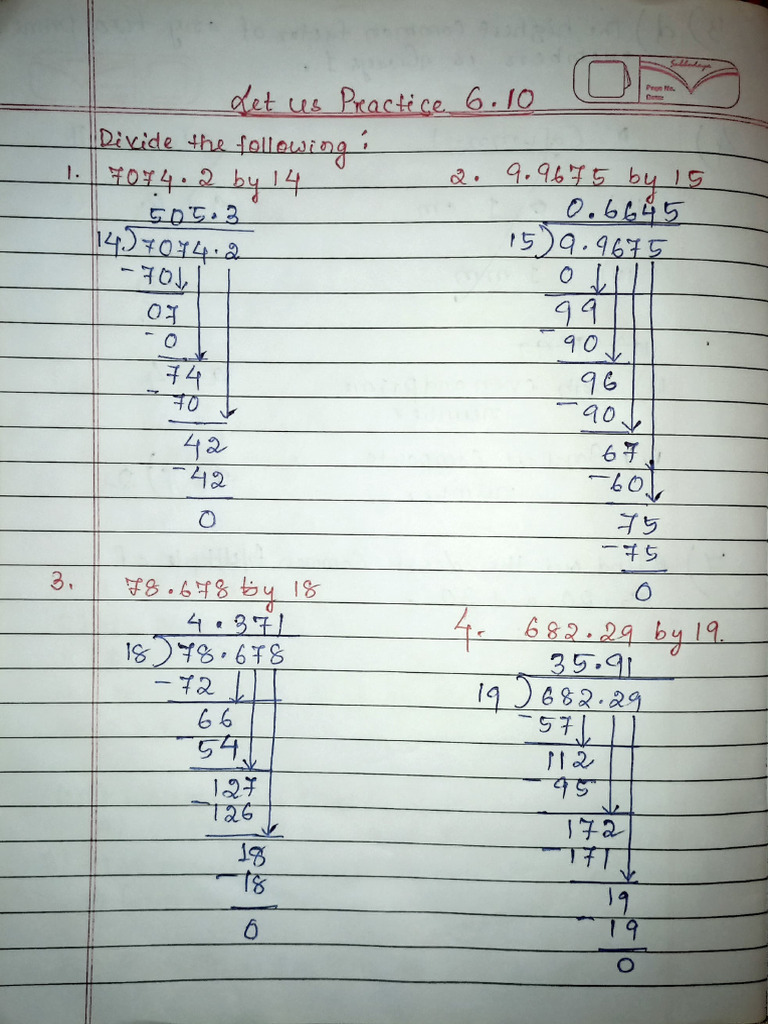 Let us Practice 6.10
Page No.
Date:
Divide the following:
1. 7074.2 by 14
505.3
14)7074.2
-70
07
-0
74
-70
42
-42
0
2. 9.9675 by 15
0.6645
15)9.9675
0
99
-90
96
-90
67
-60
75
-75
0
3. 78.678 by 18
4.371
18)78.678
-72
66
-54
127
-126
18
-18
0
4. 682.29 by 19.
35.91
19)682.29
-57
112
-95
172
-171
19
-19
0